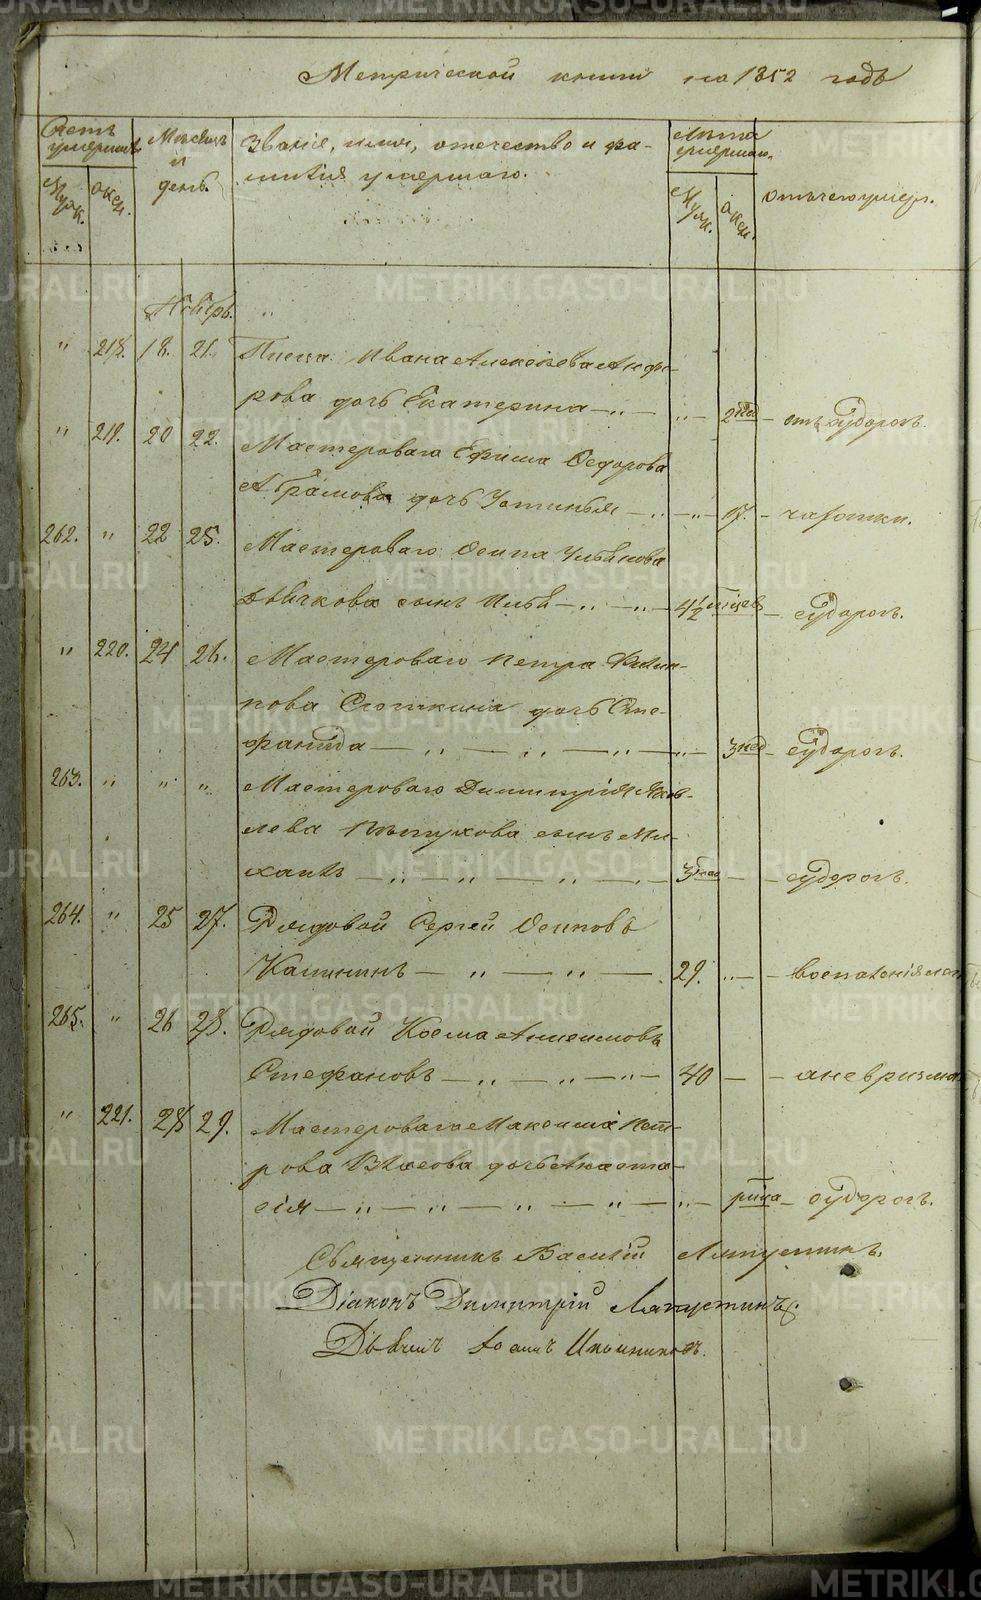 Метрической книги на 1852 годъ
Счетъ умершихъ
Муж.
Жен.
Мѣсяцъ и день.
Званіе, имя, отечество и фа-
милія умершаго.
Лѣта умершаго.
Муж.
Жен.
Отъ чего умеръ.
Ноябрь.
" 218. 18. 21. Писца Ивана Алексѣева Анфи-
рова дочь Екатерина — " — " — 2 нед — отъ судорогъ.
" 219. 20 22. Мастероваго Ефима Ѳедорова
Абрамова дочь Устинья — " — " — 17. — чахотки.
262. " 22 25. Мастероваго Осипа Ульянова
сынъ Илья — " — " — 4½ мѣсяц — судорогъ.
" 220. 24 26. Мастероваго Петра Филип-
пова Сюткина дочь Сте-
фанида — " — " — " — " — 3 нед — судорогъ.
263. " " " Мастероваго Димитрія Яков-
лева Пѣтухова сынъ Ми-
хаилъ — " — " — " — 3 нед — — судорогъ.
264. " 25 27. Рядовой Сергей Осиповъ
Калининъ — " — " — 29. " — воспаленія
265. " 26 28. Рядовой Косма Анисимовъ
Стефановъ — " — " — " — 40 — — аневризма
" 221. 28 29. Мастероваго Максима Пет-
рова Власова дочь Анаста-
сія — " — " — " — " — " — судорогъ.
Священникъ Василій Ляпустинъ.
Діаконъ Димитрій Ляпустинъ.
Дьячекъ Іоаннъ Иконниковъ.
METRIKI.GASO-URAL.RU